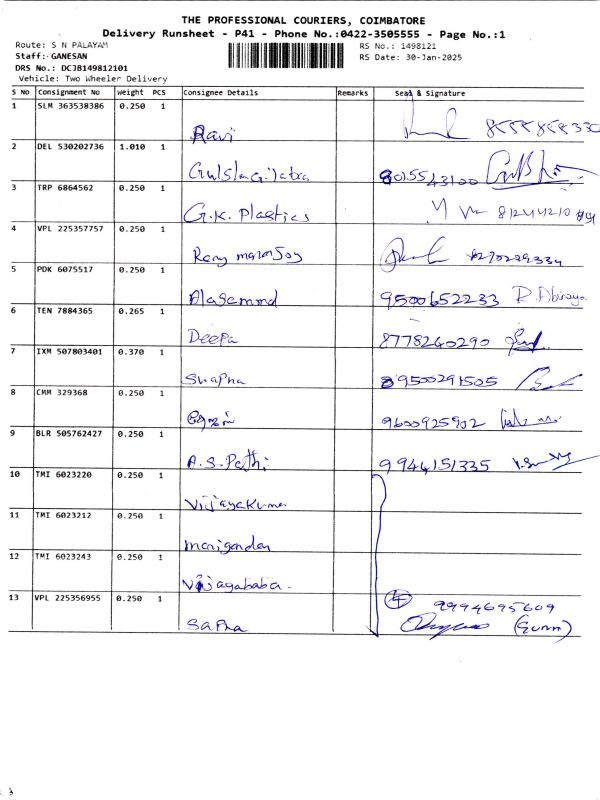 THE PROFESSIONAL COURIERS, COIMBATORE
Delivery Runsheet - P41 - Phone No.:0422-3505555 - Page No.:1
Route: S N PALAYAM RS No.: 1498121
Staff: GANESAN RS Date: 30-Jan-2025
DRS No.: DCJB149812101
Vehicle: Two Wheeler Delivery
S No Consignment No Weight PCS Consignee Details Remarks Seal & Signature
1 SLM 363538386 0.250 1
Ravi
2 DEL 530202736 1.010 1
8015543100
3 TRP 6864562 0.250 1
G.K. Plastics
4 VPL 225357757 0.250 1
5 PDK 6075517 0.250 1
9500652233
6 TEN 7884365 0.265 1
Deepa 8778240290
7 IXM 507803401 0.370 1
Swapna 9500291505
8 CMM 329368 0.250 1
9600925902
9 BLR 505762427 0.250 1
A.S. Pathi 9944151335
10 TMI 6023220 0.250 1
Vijayakumar
11 TMI 6023212 0.250 1
manigandan
12 TMI 6023243 0.250 1
Vijayababa.
13 VPL 225356955 0.250 1 4 9994695609
Sapna